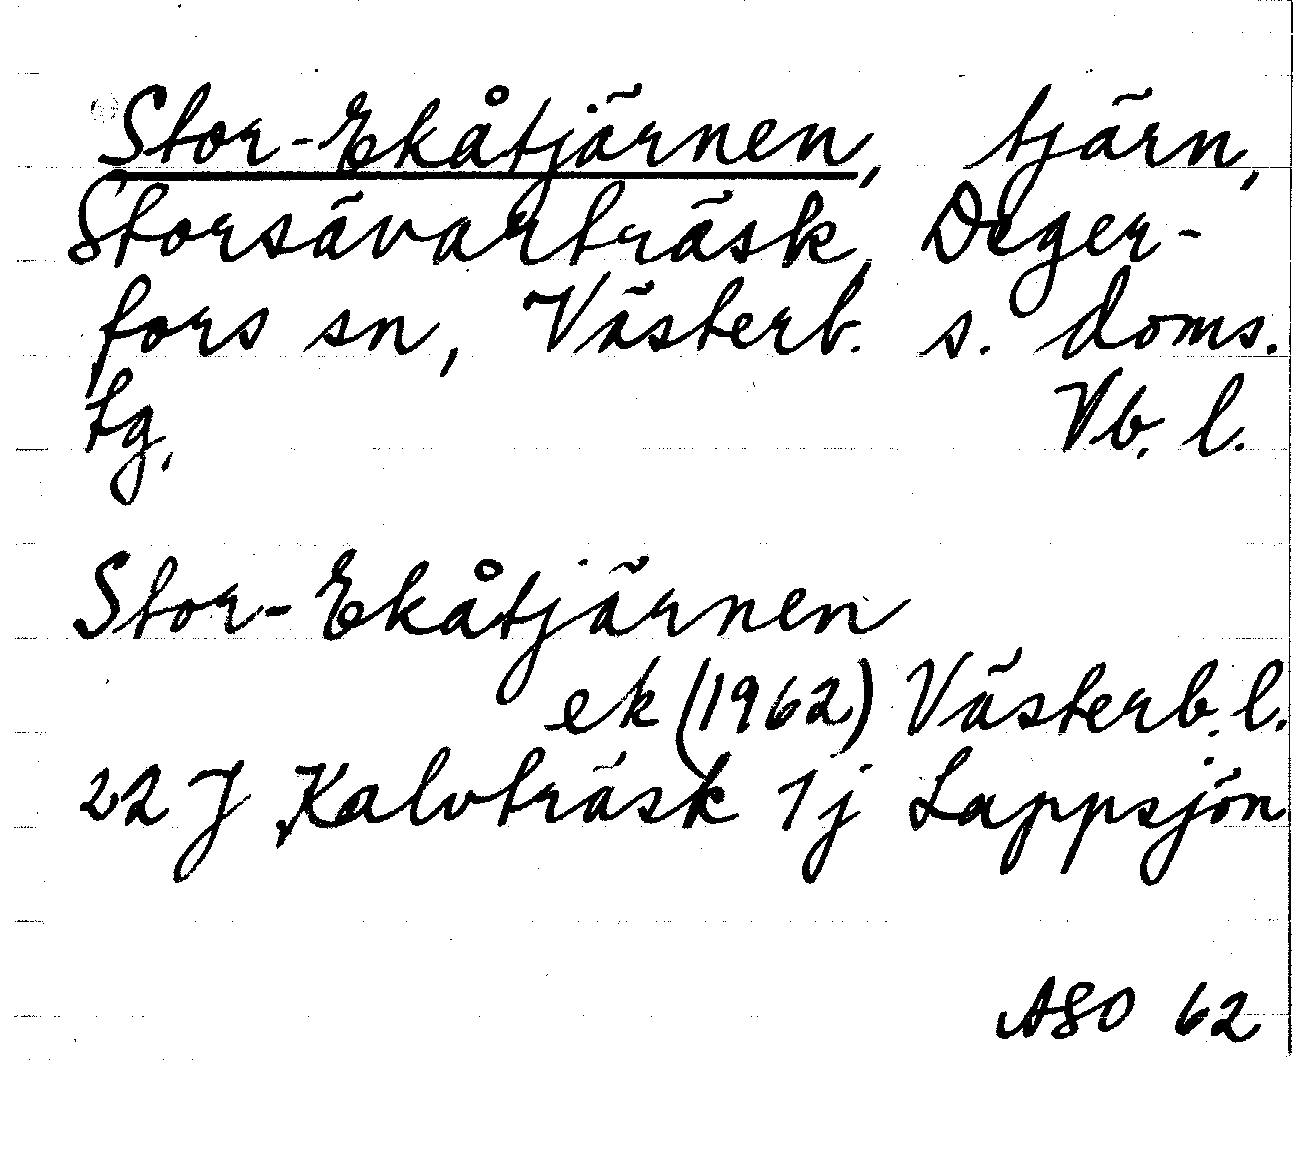 Stor-Ekåtjärnen, tjärn,
Storsävarträsk, Deger-
fors sn, Västerb. s. doms.
tg. Vb. l.
Stor-Ekåtjärnen
ek (1962) Västerb. l.
22 J Kalvträsk 1j Lappsjön
ASO 62